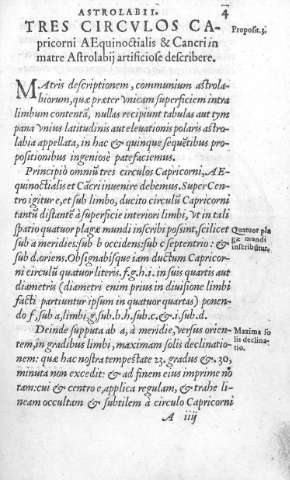 ASTROLABII. 4
TRES CIRCVLOS CA-
pricorni AEquinoctialis & Cancri in
matre Astrolabij artificiose describere.
Proposit.3.
MAtris descriptionem, communium astrola-
biorum, quæ præter vnicam superficiem intra
limbum contentã, nullas recipiunt tabulas aut tym
pana vnius latitudinis aut eleuationis polaris astro-
labia appellata, in hac & quinque sequẽtibus pro-
positionibus ingeniosè patefaciemus.
Principio omniũ tres circulos Capricorni, AE-
quinoctialis et Cãcri inuenire debemus. Super Cen-
tro igitur e, et sub limbo, ducito circulũ Capricorni
tantũ distantẽ à superficie interiori limbi, vt in tali
spatio quatuor plagæ mundi inscribi possint, scilicet
sub a meridies: sub b occidens: sub c septentrio: &
sub d. oriens. Obsignabisque iam ductum Capricor-
ni circulũ quatuor literis. f. g. h. i. in suis quartis aut
diametris (diametri enim prius in diuisione limbi
facti partiuntur ipsum in quatuor quartas) ponen-
do f, sub a, limbi, g, sub b. h, sub c. & i. sub d.
Quatuor pla
gæ mundi
inscribũtur.
Deinde supputa ab a, à meridie, versus orien-
tem, in gradibus limbi, maximam solis declinatio-
nem: quæ hac nostra tempestate 23. gradus &. 30,
minuta non excedit: & ad finem eius imprime no
tam: cui & centro e, applica regulam, & trahe li-
neam occultam & subtilem à circulo Capricorni
Maxima so
lis declina-
tio.
A iiij